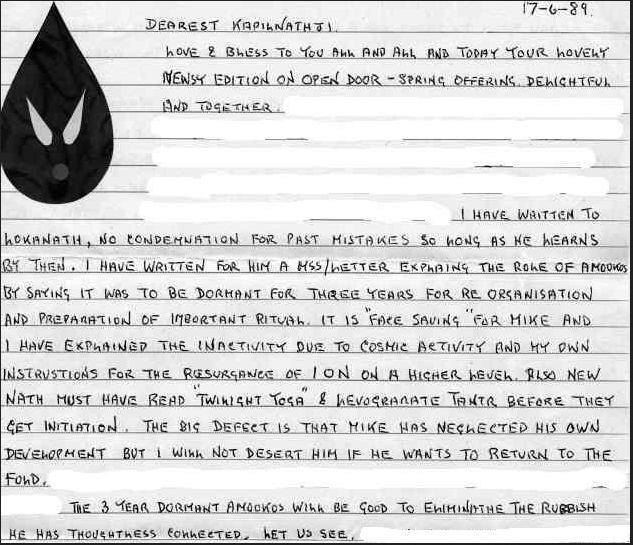 17-6-89.
DEAREST KAPILNATHJI.
LOVE & BLESS TO YOU ALL AND ALL AND TODAY YOUR LOVELY
NEWSY EDITION ON OPEN DOOR - SPRING OFFERING. DELIGHTFUL
AND TOGETHER.
I HAVE WRITTEN TO
LOKANATH, NO CONDEMNATION FOR PAST MISTAKES SO LONG AS HE LEARNS
BY THEN. I HAVE WRITTEN FOR HIM A MSS/LETTER EXPLAING THE ROLE OF AMOOKOS
BY SAYING IT WAS TO BE DORMANT FOR THREE YEARS FOR RE ORGANISATION
AND PREPARATION OF IMPORTANT RITUAL. IT IS "FACE SAVING" FOR MIKE AND
I HAVE EXPLAINED THE INACTIVITY DUE TO COSMIC ACTIVITY AND MY OWN
INSTRUSTIONS FOR THE RESURGANCE OF ION ON A HIGHER LEVEL. ALSO NEW
NATH MUST HAVE READ "TWILIGHT YOGA" & LEVOGRARATE TANTR BEFORE THEY
GET INITIATION. THE BIG DEFECT IS THAT MIKE HAS NEGLECTED HIS OWN
DEVELOPMENT BUT I WILL NOT DESERT HIM IF HE WANTS TO RETURN TO THE
FOLD.
THE 3 YEAR DORMANT AMOOKOS WILL BE GOOD TO ELIMINATHE THE RUBBISH
HE HAS THOUGHTLESS CONNECTED. LET US SEE.